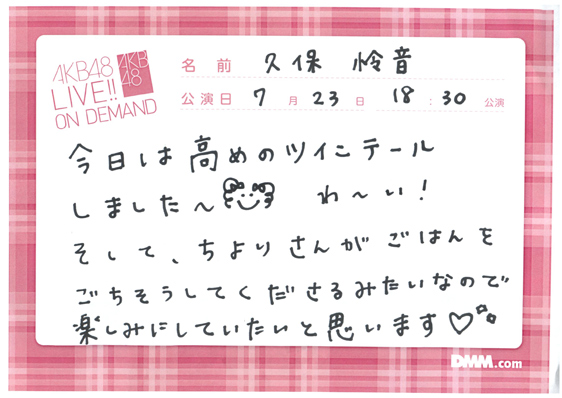 AKB48
LIVE!!
ON DEMAND
AKB
48
名前 久保 怜音
公演日 7月23日 18:30公演
今日は高めのツインテール
しました〜 わ〜い!
そして、ちよりさんがごはんを
ごちそうしてくださるみたいなので
楽しみにしていたいと思います♡
DMM.com